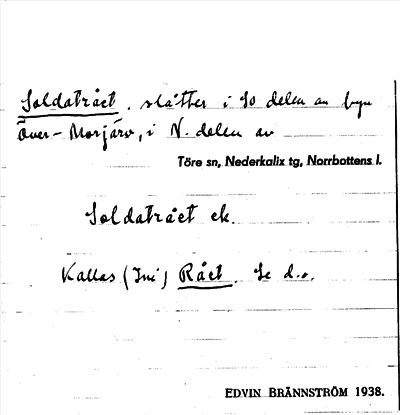 Soldatrået, slåtter i SO delen av byn
Över-Morjärv, i N. delen av
Töre sn, Nederkalix tg, Norrbottens l.
Soldatrået ek.
Kallas (Ini) Rået. Se d.o.
EDVIN BRÄNNSTRÖM 1938.